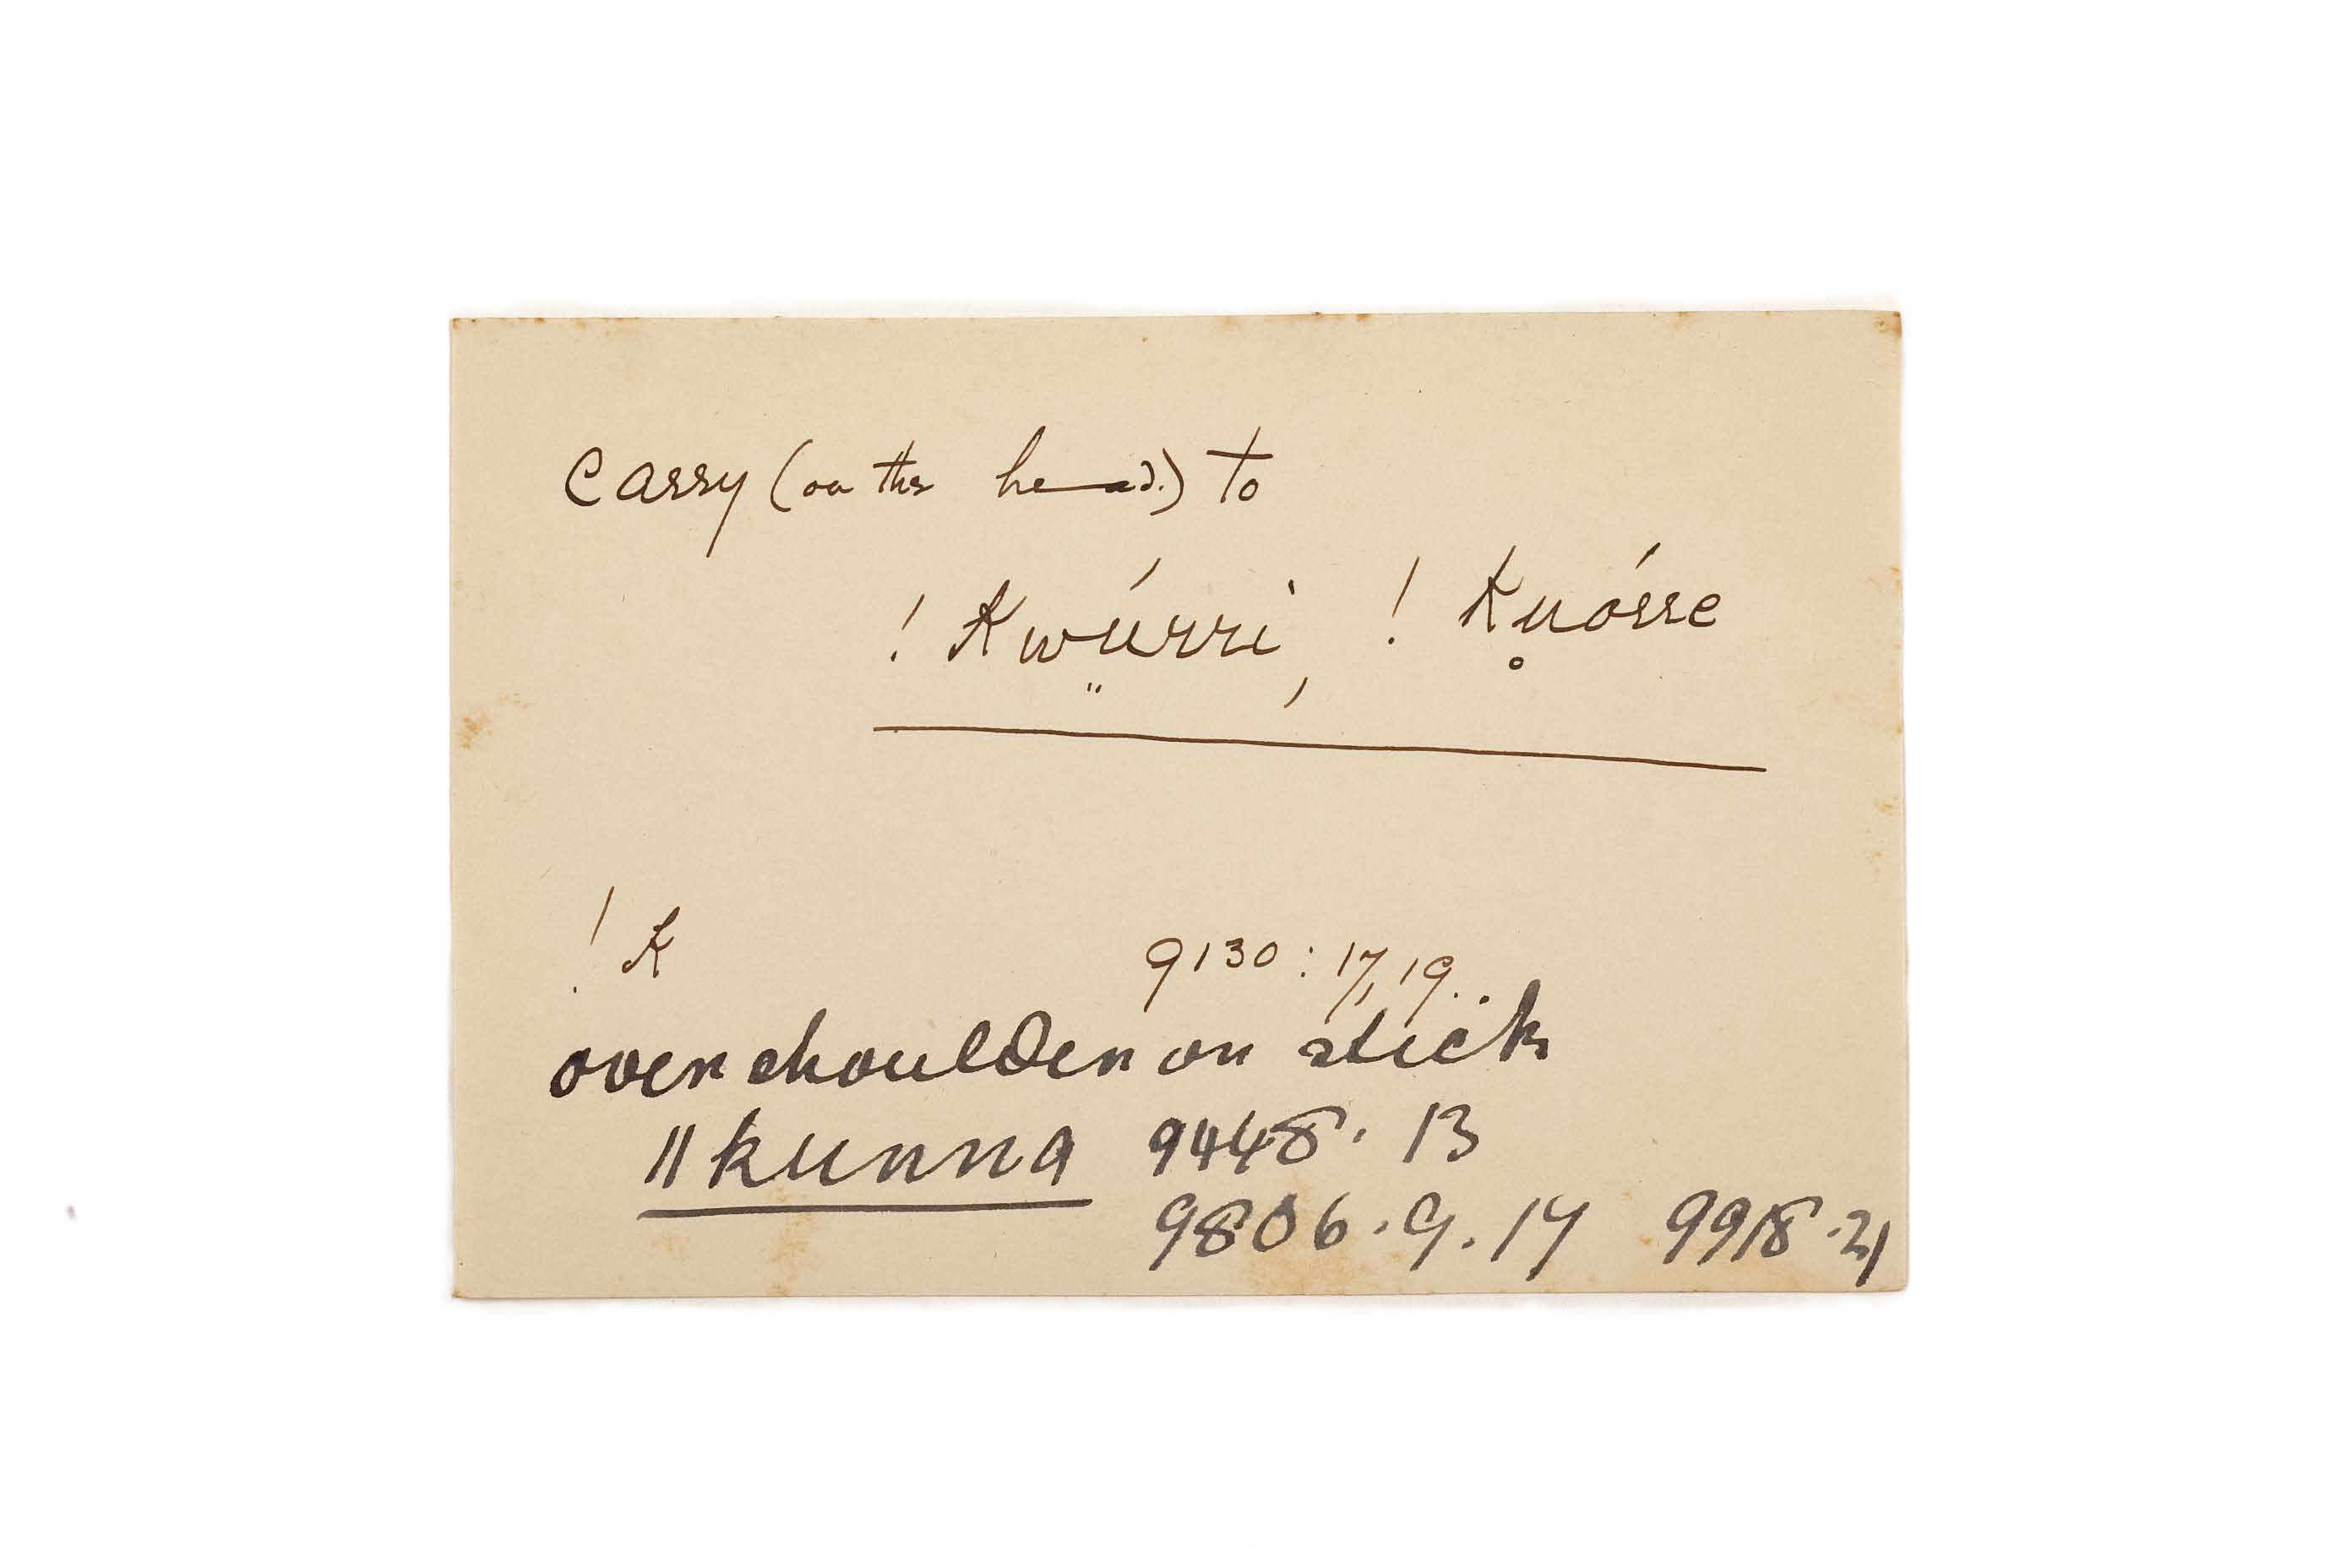 Carry (on the head.) to
! kwṳ̈́rri, ! ku̥órre
!k 9130 : 17, 19..
over shoulder on stick
ǁkunna 9448. 13
9806. 9. 17 9918. 21